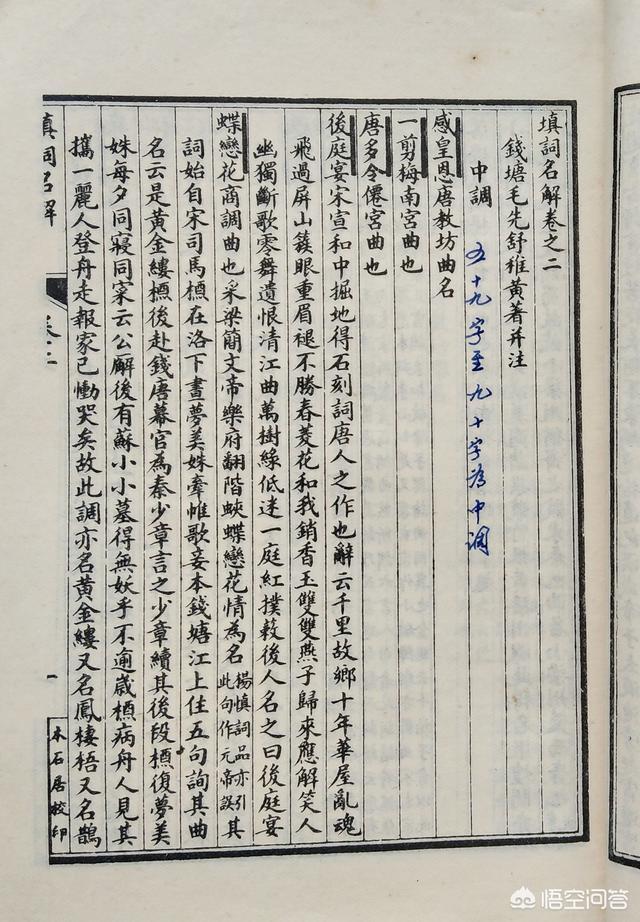 填詞名解卷之二
錢塘毛先舒稚黃著并注
中調
五十九字至九十字为中调
感皇恩唐教坊曲名
一剪梅南宮曲也
唐多令僊宮曲也
後庭宴宋宣和中掘地得石刻詞唐人之作也辭云千里故鄉十年華屋亂魂
飛過屏山簇眼重眉褪不勝春菱花和我銷香玉雙雙燕子歸來應解笑人
幽獨斷歌零舞遺恨清江曲萬樹綠低迷一庭紅撲簌後人名之曰後庭宴
蝶戀花商調曲也采梁簡文帝樂府翻階蛺蝶戀花情為名楊慎詞品亦引此句作元帝誤其
詞始自宋司馬槱在洛下晝夢美姝牽帷歌妾本錢塘江上住五句詢其曲
名云是黃金縷槱後赴錢唐幕官為秦少章言之少章續其後段槱復夢美
姝每夕同寢同寀云公廨後有蘇小小墓得無妖乎不逾歲槱病舟人見其
攜一麗人登舟走報家已慟哭矣故此調亦名黃金縷又名鳳棲梧又名鵲
填詞名解
卷二
一
本石居校印
悟空问答